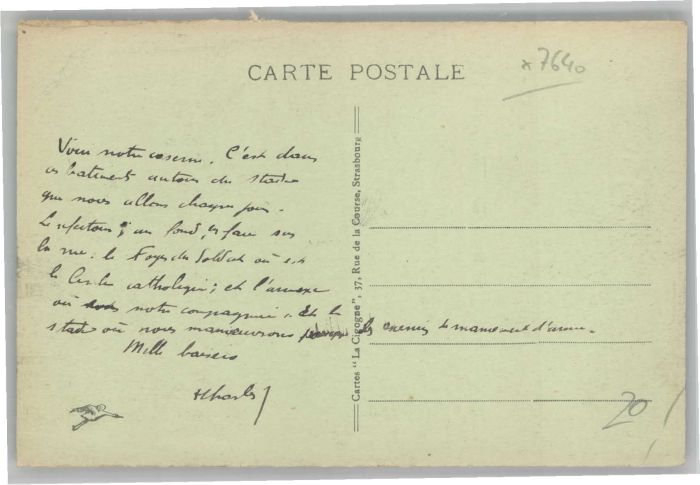 CARTE POSTALE
x 7640
Voici notre caserne. C'est dans
ces batiments autour du stade
que nous allons chaque jour.
Le refectoire; au fond, en face sur
la rue. le Foyer du Soldat où est
le Cercle catholique; et l'annexe
où notre compagnie. Et le
stade où nous manoeuvrons les exercices de maniement d'armes.
Mille baisers
Charles
Cartes "La Cigogne", 37, Rue de la Course, Strasbourg
20